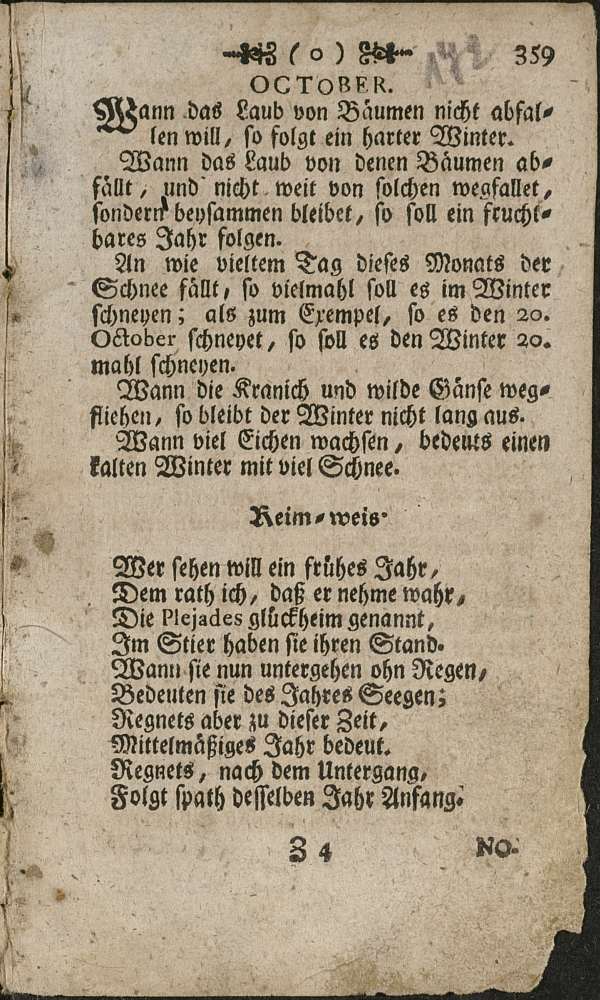 ( o ) 359
OCTOBER.
Wann das Laub von Bäumen nicht abfal-
len will, so folgt ein harter Winter.
Wann das Laub von denen Bäumen ab-
fällt, und nicht weit von solchen wegfallet,
sondern beysammen bleibet, so soll ein frucht-
bares Jahr folgen.
An wie vieltem Tag dieses Monats der
Schnee fällt, so vielmahl soll es im Winter
schneyen; als zum Exempel, so es den 20.
October schneyet, so soll es den Winter 20.
mahl schneyen.
Wann die Kranich und wilde Gänse weg-
fliehen, so bleibt der Winter nicht lang aus.
Wann viel Eichen wachsen, bedeuts einen
kalten Winter mit viel Schnee.
Reim-weis.
Wer sehen will ein frühes Jahr,
Dem rath ich, daß er nehme wahr,
Die Plejades glückheim genannt,
Im Stier haben sie ihren Stand.
Wann sie nun untergehen ohn Regen,
Bedeuten sie des Jahres Seegen;
Regnets aber zu dieser Zeit,
Mittelmäßiges Jahr bedeut.
Regnets, nach dem Untergang,
Folgt spath desselben Jahr Anfang.
Z 4 NO-